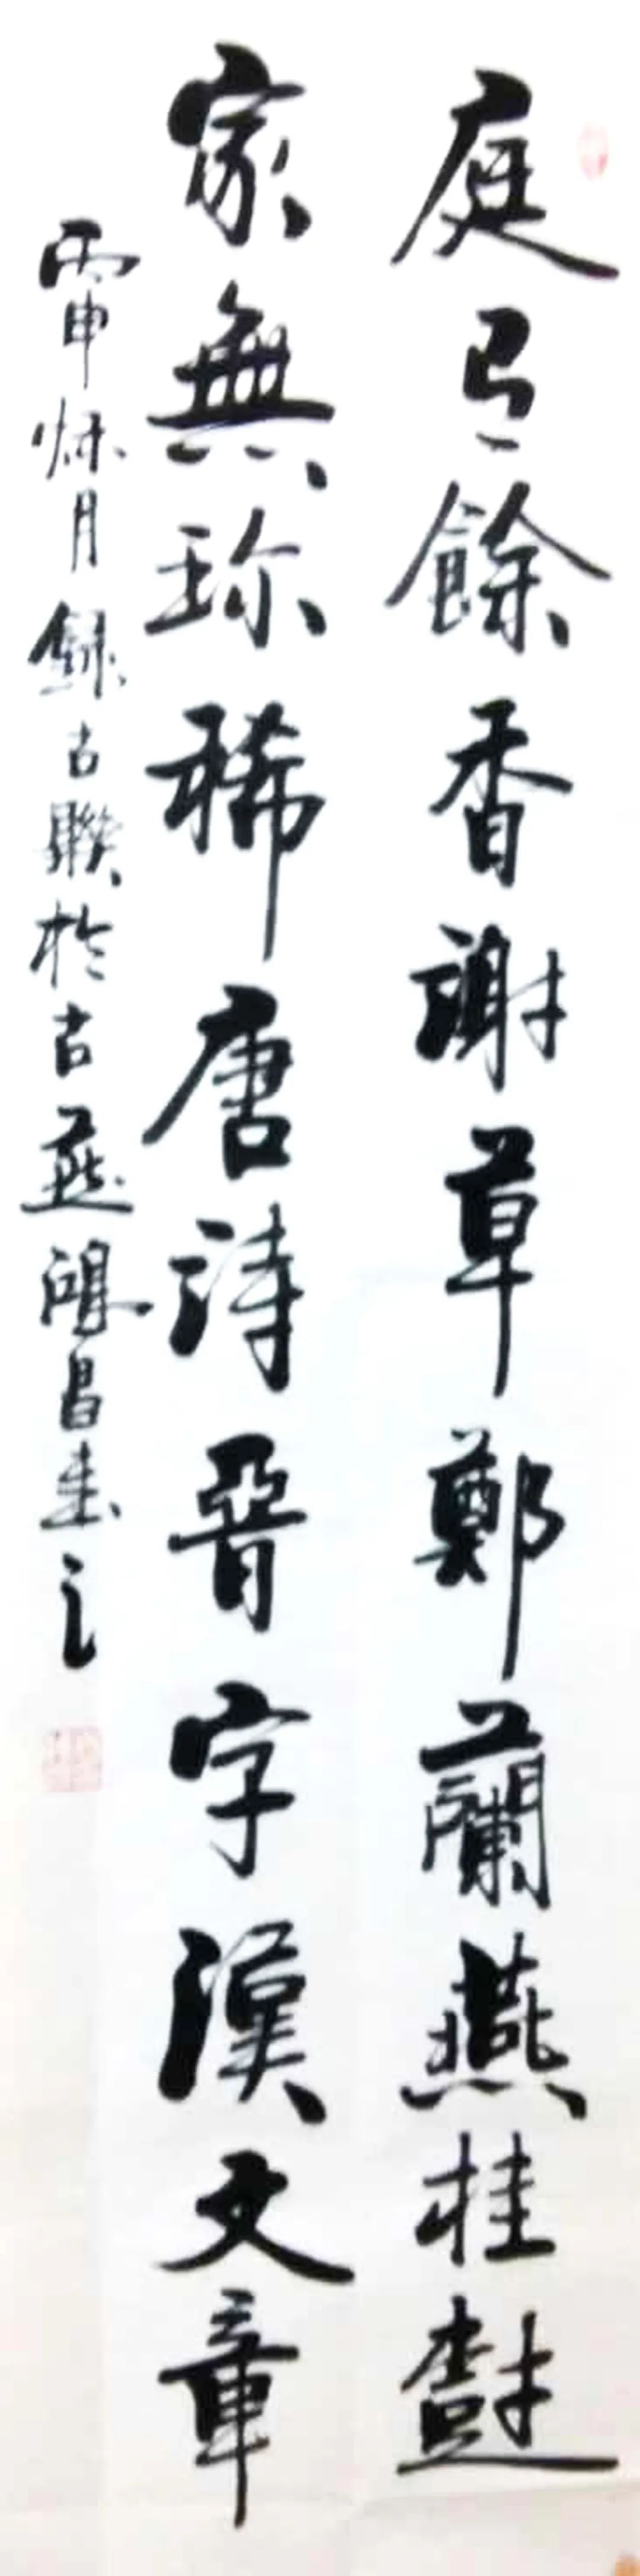 庭有餘香謝草鄭蘭燕桂樹
家無珎稀唐詩晉字漢文章
丙申烁月錄古聯於古燕鴻昌書之